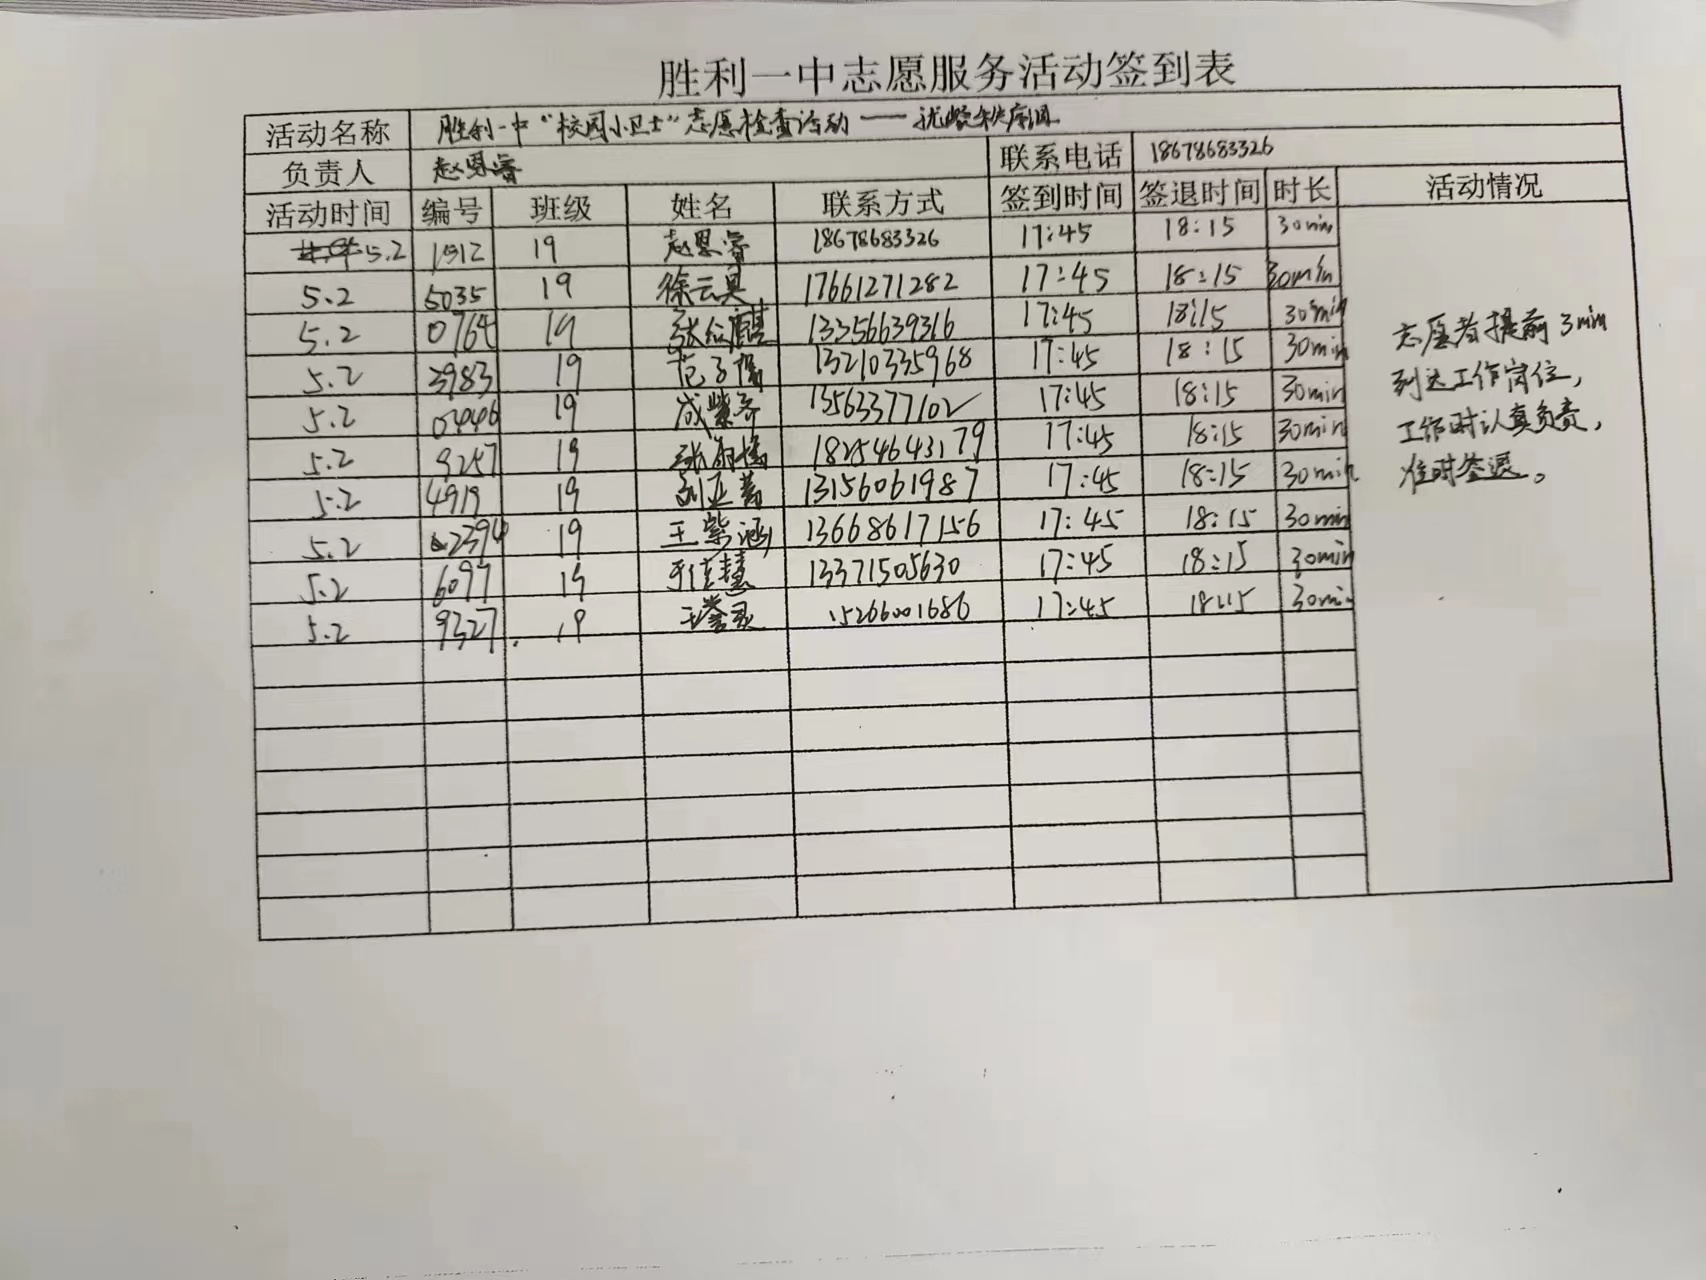 胜利一中志愿服务活动签到表
活动名称 胜利一中“校园小卫士”志愿检查活动——就餐秩序组
负责人 赵思睿 联系电话 18678683326
活动时间 编号 班级 姓名 联系方式 签到时间 签退时间 时长 活动情况
5.2 1512 19 赵思睿 18678683326 17:45 18:15 30min
5.2 5035 19 徐云昊 17661271282 17:45 18:15 30min
5.2 0764 19 13356639316 17:45 18:15 30min
5.2 3983 19 范子 13210335968 17:45 18:15 30min
5.2 19 成紫 13563377102 17:45 18:15 30min
5.2 9257 19 张 18254643179 17:45 18:15 30min
5.2 4919 19 刘亚 13156061987 17:45 18:15 30min
5.2 2394 19 王紫涵 13668617156 17:45 18:15 30min
5.2 6097 19 于佳慧 13371505630 17:45 18:15 30min
5.2 9327 19 王誉灵 15266001686 17:45 18:15 30min
志愿者提前3min
到达工作岗位,
工作时认真负责,
准时签退。